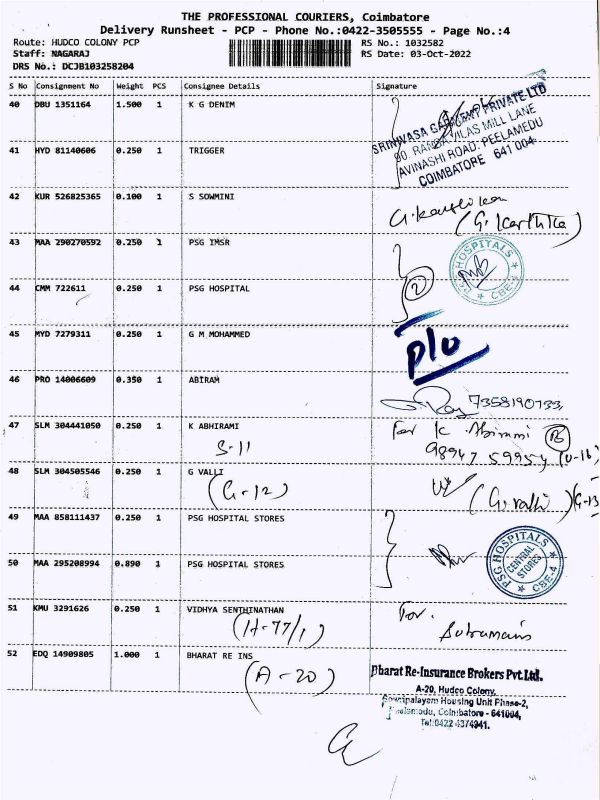 THE PROFESSIONAL COURIERS, Coimbatore
Delivery Runsheet - PCP - Phone No.:0422-3505555 - Page No.:4
Route: HUDCO COLONY PCP RS No.: 1032582
Staff: NAGARAJ RS Date: 03-Oct-2022
DRS No.: DCJB103258204
S No Consignment No Weight PCS Consignee Details Signature
40 DBU 1351164 1.500 1 K G DENIM
SRINIVASA GARMENT PRIVATE LTD
90, RANGA VILAS MILL LANE
AVINASHI ROAD, PEELAMEDU
COIMBATORE 641 004
41 HYD 81140606 0.250 1 TRIGGER
42 KUR 526825365 0.100 1 S SOWMINI
(G. Karthika)
43 MAA 290270592 0.250 1 PSG IMSR
PSG HOSPITALS
CBE-4
44 CMM 722611 0.250 1 PSG HOSPITAL
2
45 MYD 7279311 0.250 1 G M MOHAMMED
p/o
46 PRO 14006609 0.350 1 ABIRAM
7358190733
47 SLM 304441050 0.250 1 K ABHIRAMI
For K. Abirami
S-11
98947 59954 (U-16)
48 SLM 304505546 0.250 1 G VALLI
(G-12) (G. Valli) G-13
49 MAA 858111437 0.250 1 PSG HOSPITAL STORES
50 MAA 295208994 0.890 1 PSG HOSPITAL STORES
PSG HOSPITALS
CENTRAL
STORES
CBE-4
51 KMU 3291626 0.250 1 VIDHYA SENTHINATHAN
(H-77/1) For.
52 EDQ 14909805 1.000 1 BHARAT RE INS
(A-20)
Bharat Re-Insurance Brokers Pvt.Ltd.
A-20, Hudco Colony,
Sowripalayam Housing Unit Phase-2,
Peelamedu, Coimbatore - 641004,
Tel:0422 4374941.